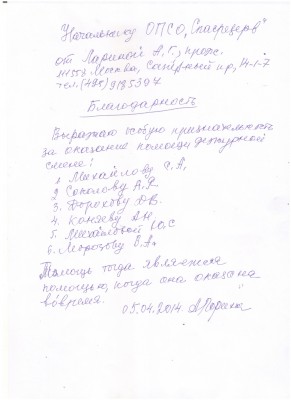 Начальнику ОПСО „Спасрезерв"
от Лариной А.Г., прож.
Москва, Сиреневый пр, 14-1-7
тел. (495) 9185397
Благодарность
Выражаю особую признательность
за оказание помощи дежурной
смене:
1. Михайлову С.А,
2. Соколову А.Я
3. Ворохову Д.В.
4. Коняеву А.Н.
5. Михайловой Ю.С
6. Морозову В.А.
Помощь тогда является
помощью, когда она оказана
вовремя.
05.04.2014.